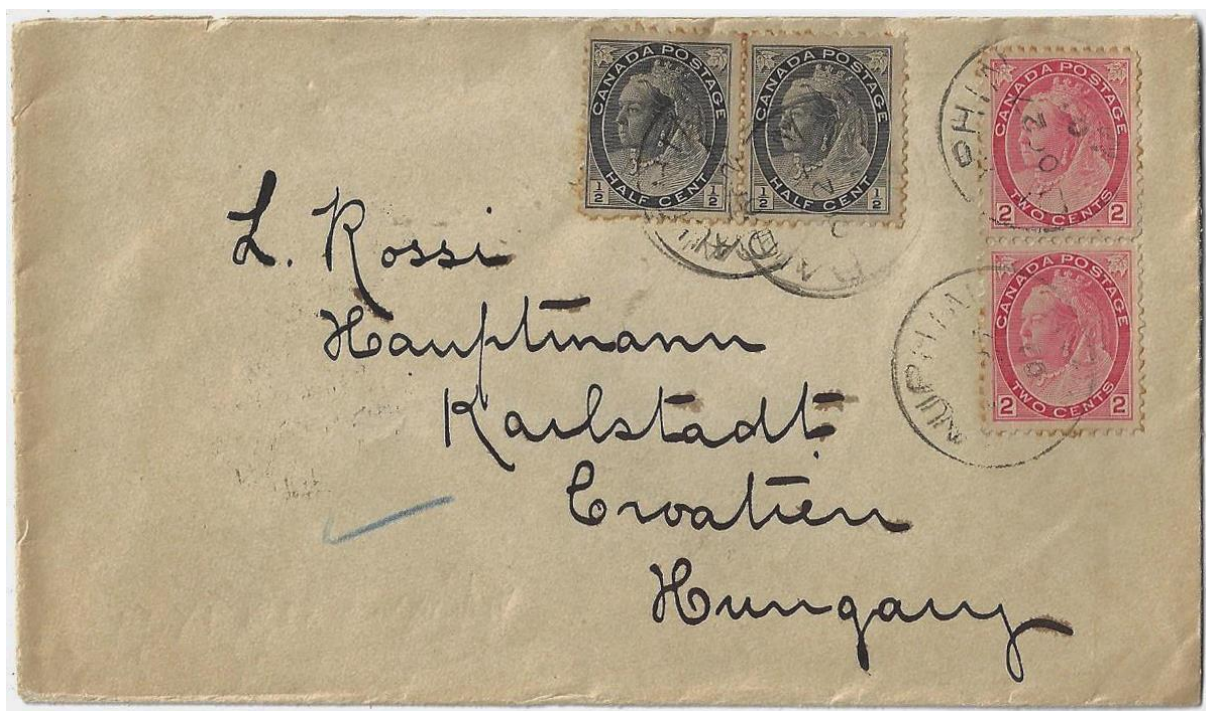 CANADA POSTAGE
½ HALF CENT ½
CANADA POSTAGE
½ HALF CENT ½
CANADA POSTAGE
2 TWO CENTS 2
CANADA POSTAGE
2 TWO CENTS 2
L. Rossi
Hauptmann
Karlstadt
Croatien
Hungary